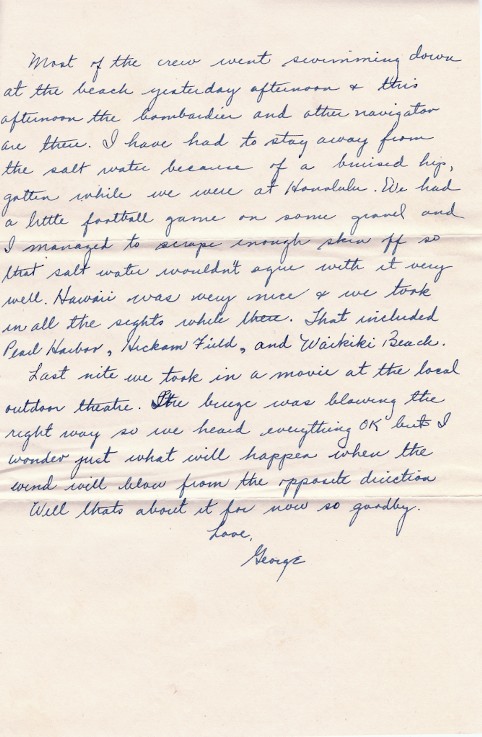 Most of the crew went swimming down
at the beach yesterday afternoon & this
afternoon the bombardier and other navigator
are there. I have had to stay away from
the salt water because of a bruised hip,
gotten while we were at Honolulu. We had
a little football game on some gravel and
I managed to scrape enough skin off so
that salt water wouldn't agree with it very
well. Hawaii was very nice & we took
in all the sights while there. That included
Pearl Harbor, Hickam Field, and Waikiki Beach.
Last nite we took in a movie at the local
outdoor theatre. The breeze was blowing the
right way so we heard everything OK but I
wonder just what will happen when the
wind will blow from the opposite direction
Well thats about it for now so goodby.
Love,
George